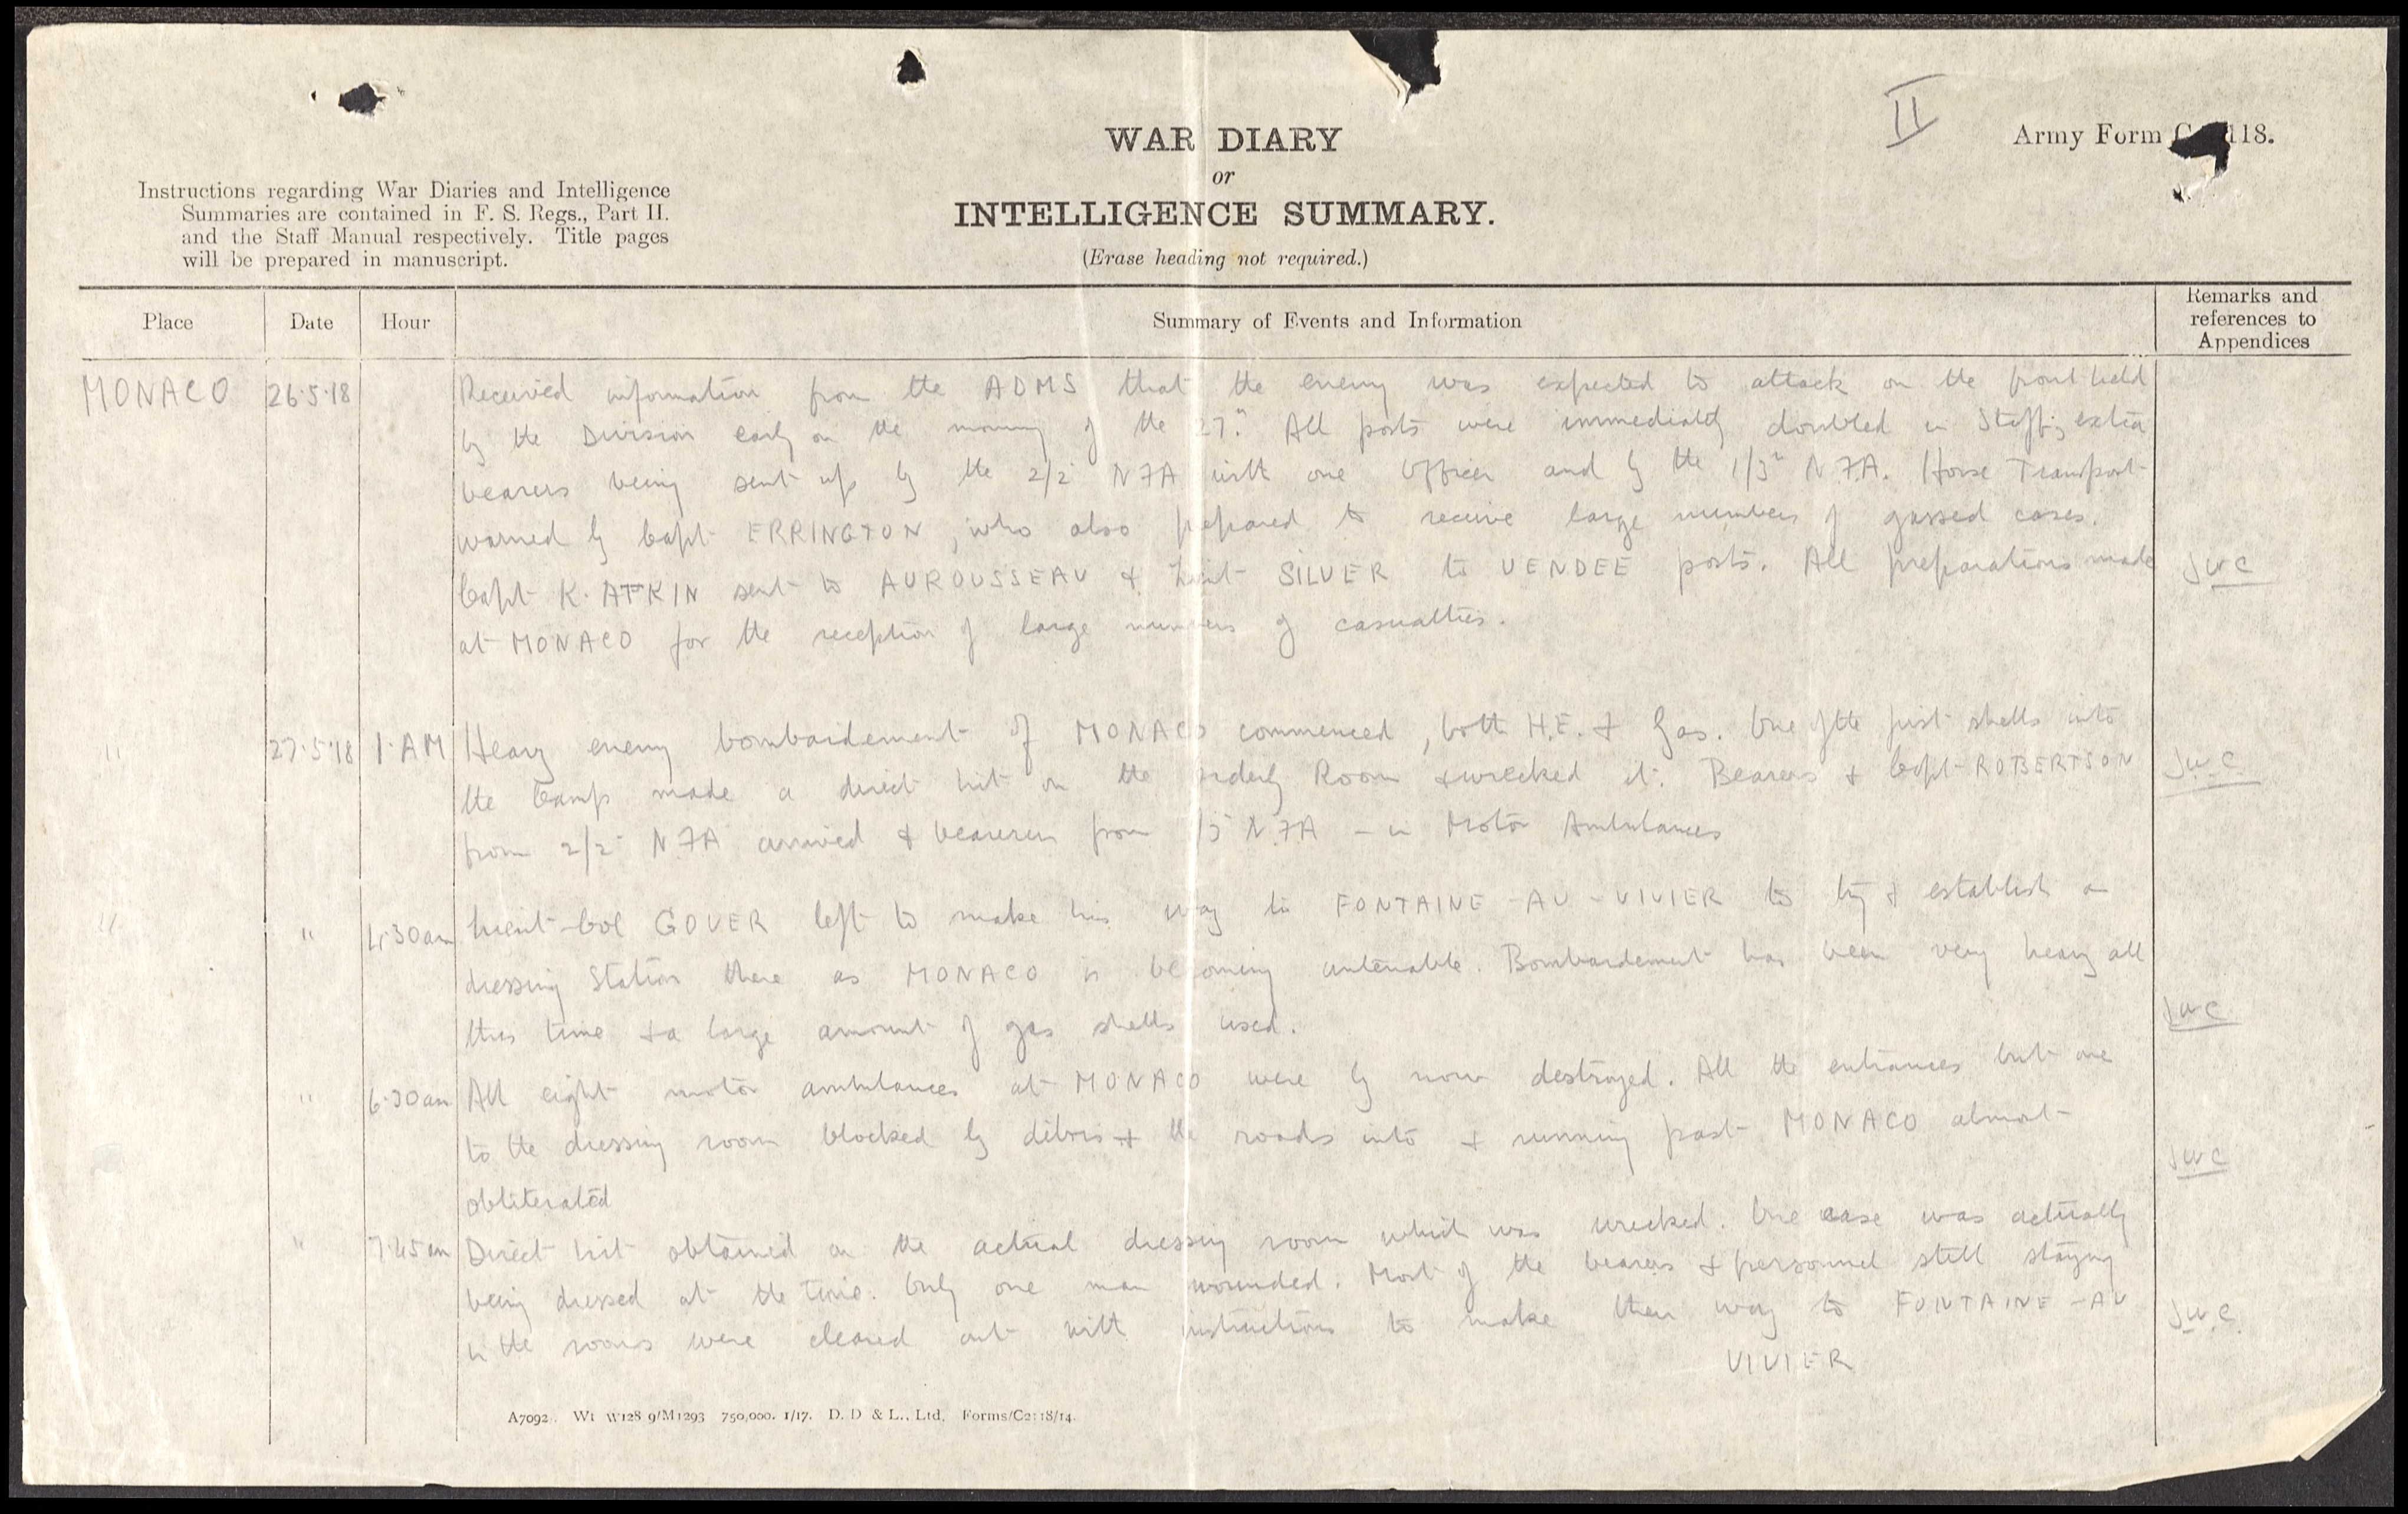 II
Army Form C. 118.
WAR DIARY
or
INTELLIGENCE SUMMARY.
(Erase heading not required.)
Instructions regarding War Diaries and Intelligence
Summaries are contained in F. S. Regs., Part II.
and the Staff Manual respectively. Title pages
will be prepared in manuscript.
Place Date Hour Summary of Events and Information Remarks and references to Appendices
MONACO 26.5.18 Received information from the ADMS that the enemy was expected to attack on the front held
by the Division early on the morning of the 27th. All posts were immediately doubled in Staff; extra
bearers being sent up by the 2/2 NFA with one Officer and by the 1/3rd N.F.A. Horse Transport
warned by Capt ERRINGTON, who also prepared to receive large numbers of gassed cases.
Capt K. ATKIN sent to AUROUSSEAU & Lieut SILVER to VENDEE posts. All preparations made JWC
at MONACO for the reception of large numbers of casualties.
" 27.5.18 1 AM Heavy enemy bombardement of MONACO commenced, both H.E. & Gas. One of the first shells into
the Camp made a direct hit on the orderly Room & wrecked it. Bearers & Capt ROBERTSON JWC
from 2/2 NFA arrived & bearers from 1/3 N.FA - in Motor Ambulances
" " 4.30am Lieut-Col GOVER left to make his way to FONTAINE-AU-VIVIER to try & establish a
dressing Station there as MONACO is becoming untenable. Bombardement has been very heavy all
this time & a large amount of gas shells used. JWC
" 6.30am All eight motor ambulances at MONACO were by now destroyed. All the entrances but one
to the dressing room blocked by débris & the roads into & running past MONACO almost
obliterated JWC
" 7.45am Direct hit obtained on the actual dressing room which was wrecked. One case was actually
being dressed at the time. Only one man wounded. Most of the bearers & personnel still staying
in the rooms were cleared out with instructions to make their way to FONTAINE-AU JWC
VIVIER
A7092. Wt W128 9/M1293 750,000. 1/17. D. D & L., Ltd. Forms/C2118/14.